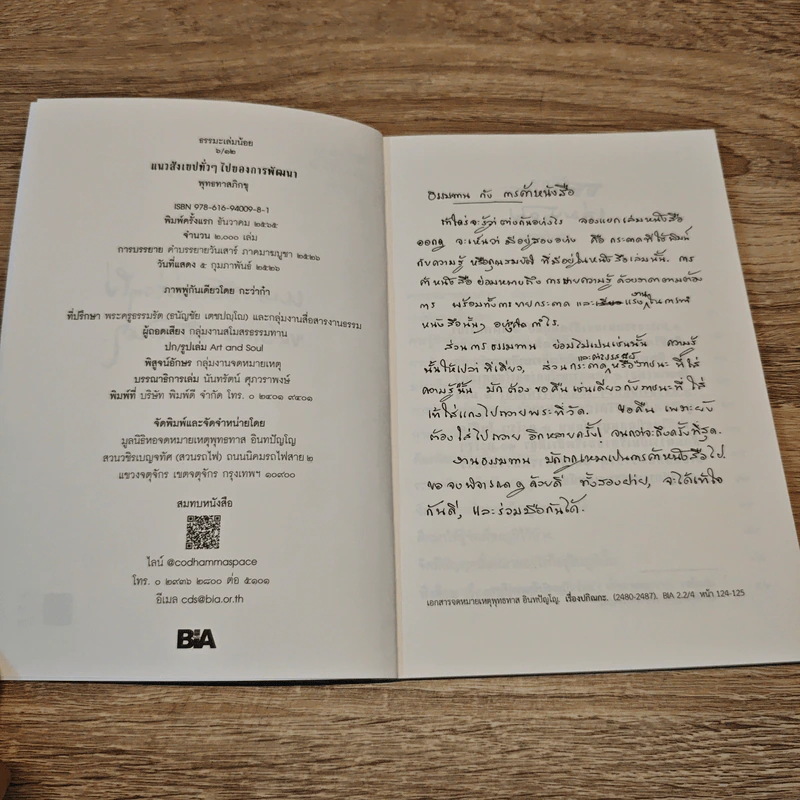 ธรรมะเล่มน้อย
๖/๑๒
แนวสังเขปทั่วๆ ไปของการพัฒนา
พุทธทาสภิกขุ
ISBN 978-616-94009-8-1
พิมพ์ครั้งแรก ธันวาคม ๒๕๖๕
จำนวน ๒,๐๐๐ เล่ม
การบรรยาย คำบรรยายวันเสาร์ ภาคมาฆบูชา ๒๕๒๖
วันที่แสดง ๕ กุมภาพันธ์ ๒๕๒๖
ภาพพู่กันเดียวโดย กะว่าก๋า
ที่ปรึกษา พระครูธรรมรัต (ธนัญชัย เตชปญฺโญ) และกลุ่มงานสื่อสารงานธรรม
ผู้ถอดเสียง กลุ่มงานสโมสรธรรมทาน
ปก/รูปเล่ม Art and Soul
พิสูจน์อักษร กลุ่มงานจดหมายเหตุ
บรรณาธิการเล่ม นันทรัตน์ ศุภวราพงษ์
พิมพ์ที่ บริษัท พิมพ์ดี จำกัด โทร. ๐ ๒๔๐๑ ๙๔๐๑
จัดพิมพ์และจัดจำหน่ายโดย
มูลนิธิหอจดหมายเหตุพุทธทาส อินทปัญโญ
สวนวชิรเบญจทัศ (สวนรถไฟ) ถนนนิคมรถไฟสาย ๒
แขวงจตุจักร เขตจตุจักร กรุงเทพฯ ๑๐๙๐๐
สมทบหนังสือ
ไลน์ @codhammaspace
โทร. ๐ ๒๙๓๖ ๒๘๐๐ ต่อ ๕๑๐๑
อีเมล cds@bia.or.th
BIA
ธรรมทาน กับ การค้าหนังสือ
ถ้าใคร่จะรู้ว่าต่างกันอย่างไร จงแยกเล่มหนังสือ
ออกดู จะเห็นว่า มีอยู่สองอย่าง คือ กระดาษที่ใช้พิมพ์
กับความรู้ หรือคุณธรรม ที่มีอยู่ในหนังสือเล่มนั้น. การ
ค้าหนังสือ ย่อมหมายถึง การขายความรู้ ด้วยราคาตามต้อง
การ พร้อมทั้งการขายกระดาษ และแรงงานในการทำ
หนังสือนั้นๆ เอากำไร.
ส่วนการธรรมทาน ย่อมไม่เป็นเช่นนั้น ความรู้
นั้นให้เปล่าทีเดียว, ส่วนกระดาษและค่าแรงหรือภาชนะที่ใส่
ความรู้นั้น มักต้องขอคืน เช่นเดียวกับภาชนะที่ใส่
เท้าใส่แกงไปถวายพระที่วัด. ขอคืน เพราะยัง
ต้องใส่ไปถวาย อีกหลายครั้ง! จนกว่าจะถึงครั้งที่สุด.
งานธรรมทาน มักถูกเหมาเป็นการค้าหนังสือไป.
ขอจงพิจารณาดูด้วยดี ทั้งสองฝ่าย, จะได้เข้าใจ
กันดี, และร่วมมือกันได้.
เอกสารจดหมายเหตุพุทธทาส อินทปัญโญ. เรื่องปกิณกะ. (2480-2487). BIA 2.2/4 หน้า 124-125